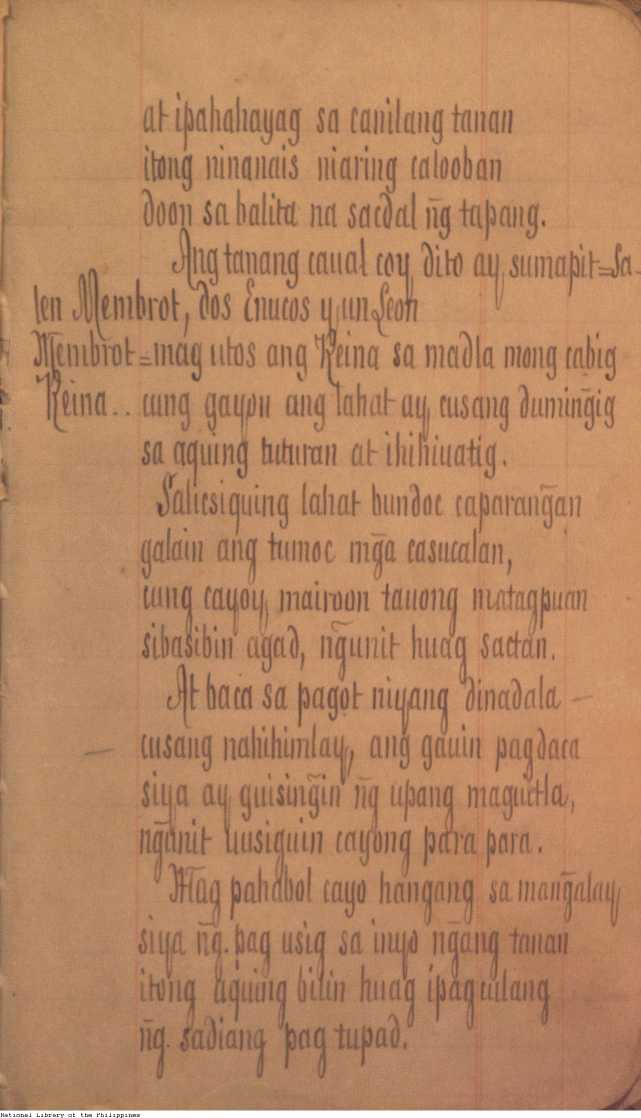 at ipahahayag sa canilang tanan
itong ninanais niaring calooban
doon sa balita na sacdal n͠g tapang.
Ang tanang caual coy dito ay sumapit=Sa-
len Membrot, dos Enucos y un Leon
Membrot=mag utos ang Reina sa madla mong cabig
Reina.. cung gayon ang lahat ay cusang dumin͠gig
sa aquing tuturan at ihihiuatig.
Salicsiquing lahat bundoc caparan͠gan
galain ang tumoc m͠ga casucalan,
cung cayoy mairoon tauong matagpuan
sibasibin agad, n͠gunit huag sactan.
At baca sa pagot niyang dinadala —
— cusang nahihimlay, ang gauin pagdaca
siya ay guisin͠gin n͠g upang maguctla,
n͠gunit uusiguin cayong para para.
Mag pahabol cayo hangang sa man͠galay
siya n͠g. pag usig sa inyo n͠gang tanan
itong aquing bilin huag ipagculang
n͠g. sadiang pag tupad.
National Library of the Philippines